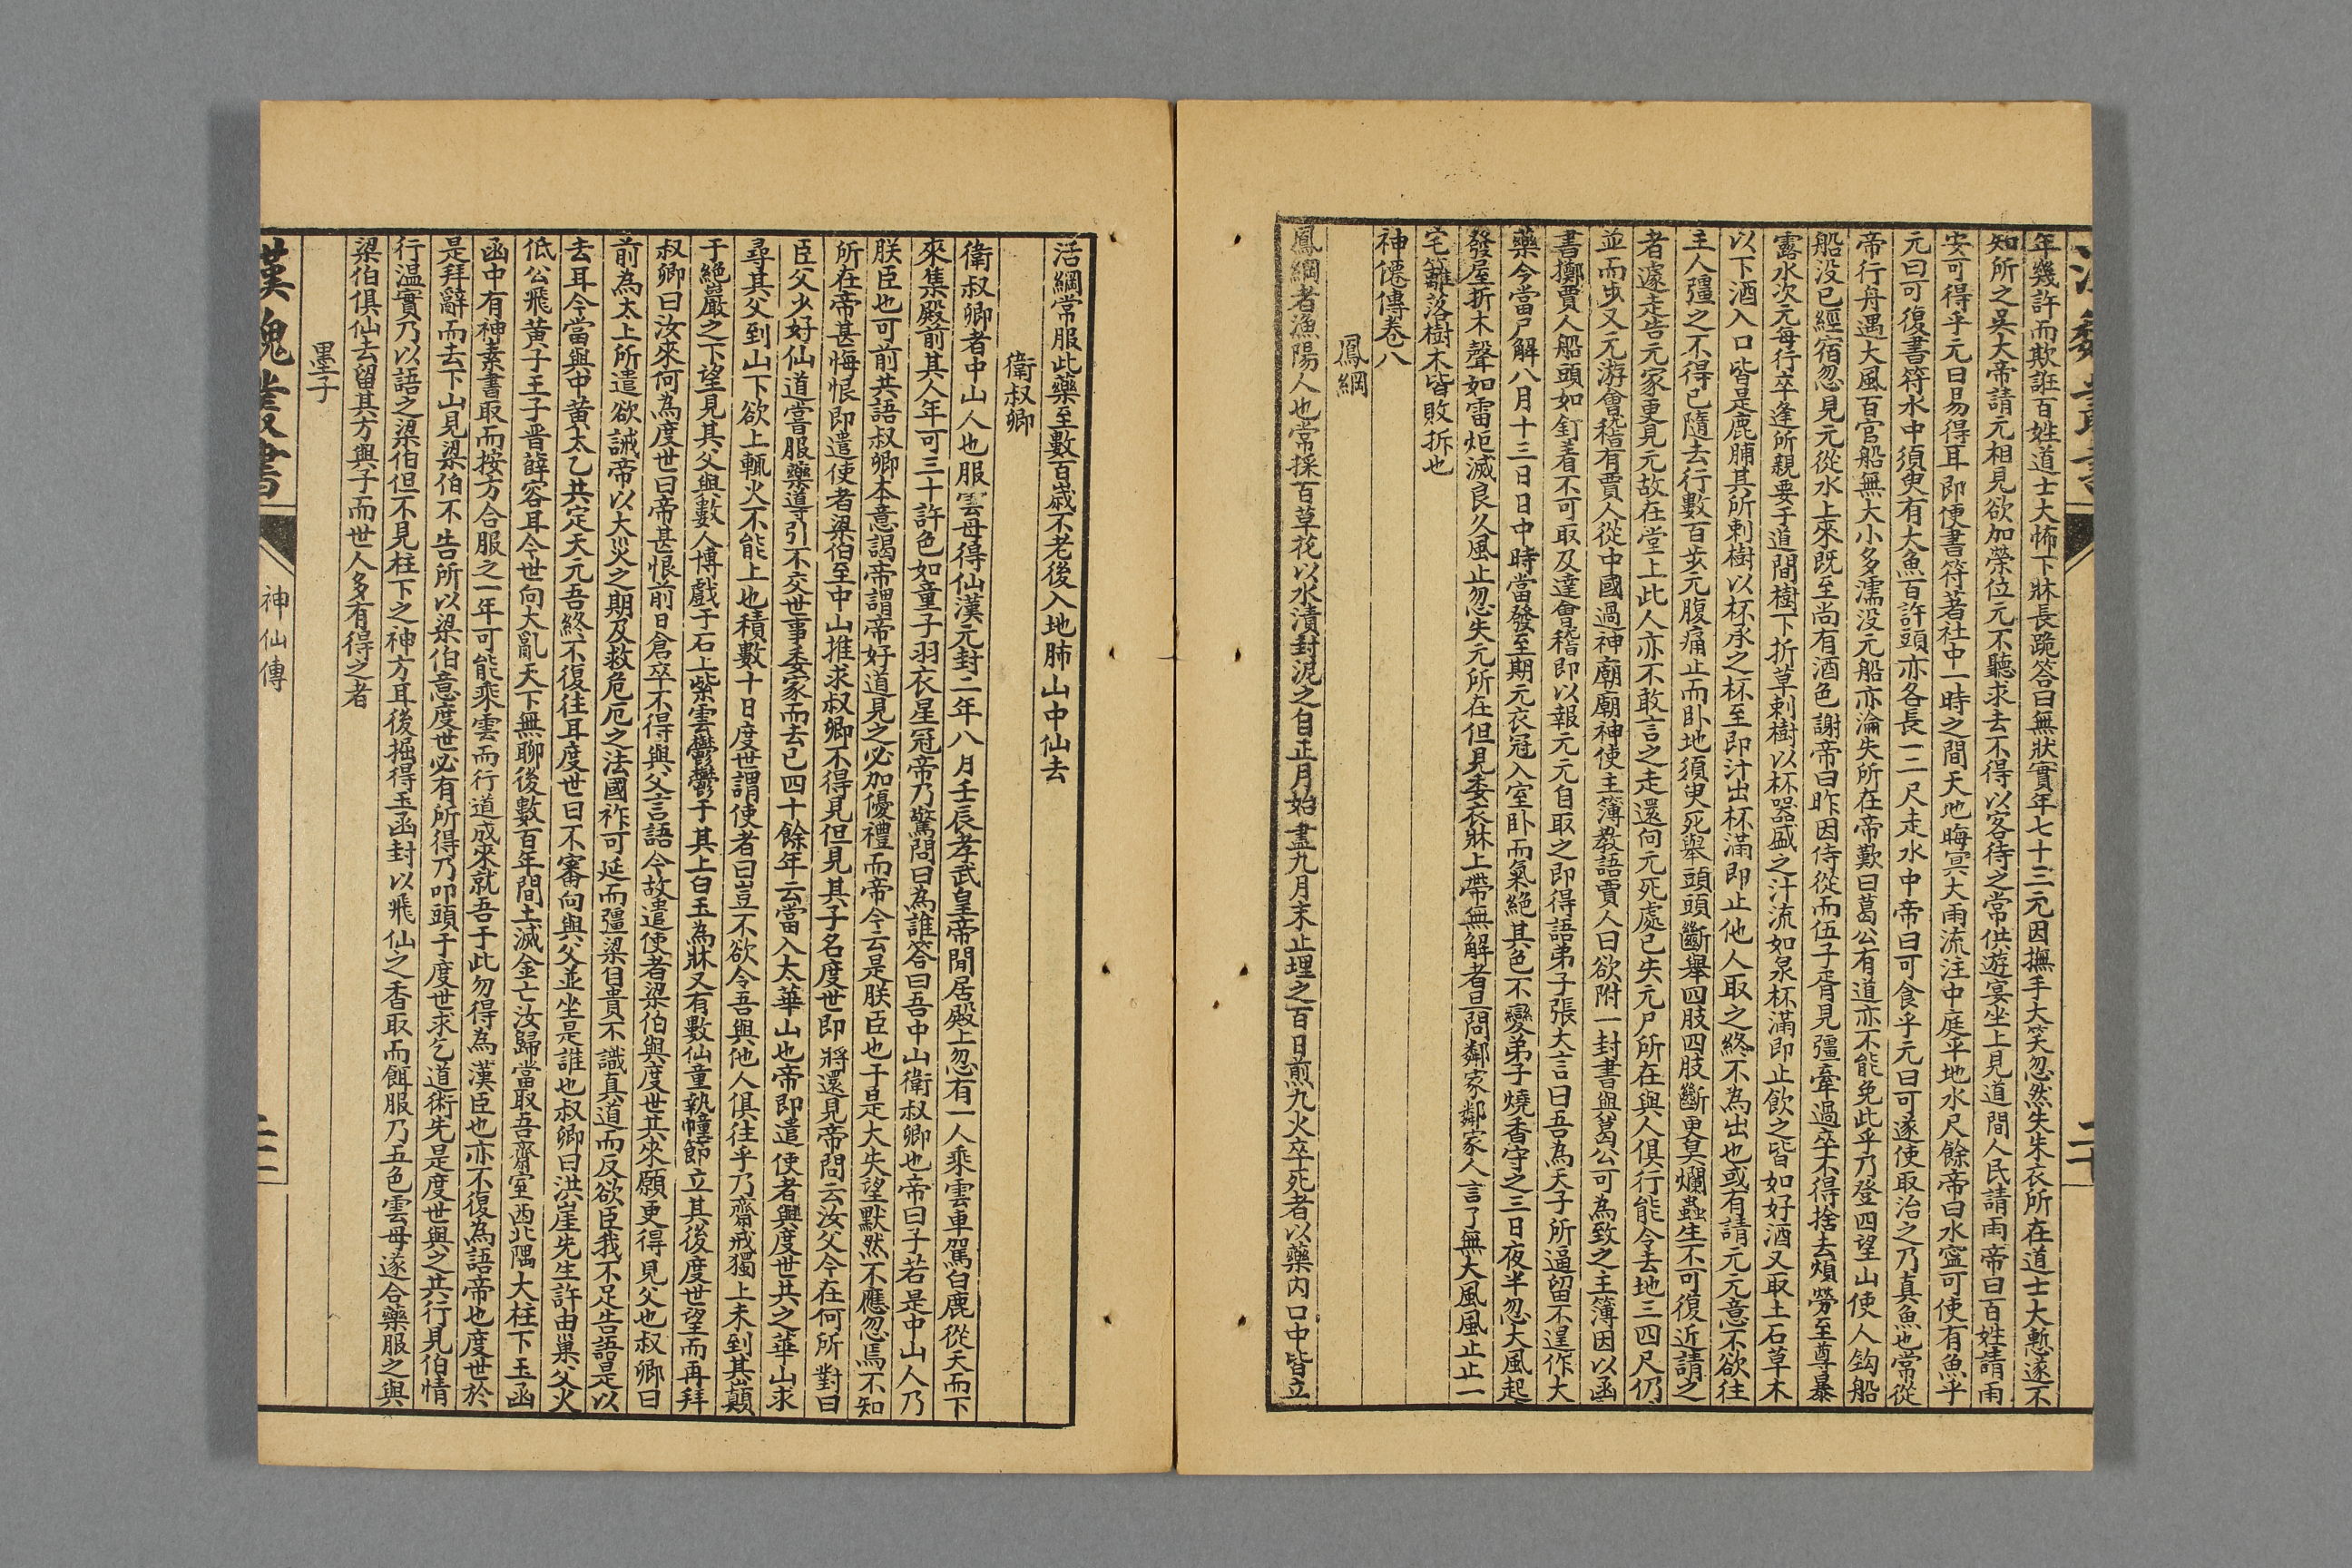 年幾許而欺誑百姓道士大怖下牀長跪答曰無狀實年七十三元因撫手大笑忽然失朱衣所在道士大慙遂不
知所之吳大帝請元相見欲加榮位元不聽求去不得以客待之常供遊宴坐上見道間人民請雨帝曰百姓請雨
安可得乎元曰易得耳即便書符著社中一時之間天地晦冥大雨流注中庭平地水尺餘帝曰水寍可使有魚乎
元曰可復書符水中須臾有大魚百許頭亦各長一二尺走水中帝曰可食乎元曰可遂使取治之乃真魚也常從
帝行舟遇大風百官船無大小多濡没元船亦淪失所在帝歎曰葛公有道亦不能免此乎乃登四望山使人鈎船
船没已經宿忽見元從水上來既至尚有酒色謝帝曰昨因侍從而伍子胥見彊牽過卒不得捨去煩勞至尊暴
露水次元每行卒逢所親要于道間樹下折草刺樹以杯器盛之汁流如泉杯滿即止飲之皆如好酒又取土石草木
以下酒入口皆是鹿脯其所刺樹以杯承之杯至即汁出杯滿即止他人取之終不為出也或有請元元意不欲往
主人彊之不得已隨去行數百步元腹痛止而卧地須臾死舉頭頭斷舉四肢四肢斷更臭爛蟲生不可復近請之
者遽走告元家更見元故在堂上此人亦不敢言之走還向元死處已失元尸所在與人俱行能令去地三四尺仍
並而步又元游會稽有賈人從中國過神廟廟神使主簿教語賈人曰欲附一封書與葛公可為致之主簿因以函
書擲賈人船頭如釘着不可取及達會稽即以報元元自取之即得語弟子張大言曰吾為天子所逼留不遑作大
藥今當尸解八月十三日日中時當發至期元衣冠入室卧而氣絶其色不變弟子燒香守之三日夜半忽大風起
發屋折木聲如雷炬滅良久風止忽失元所在但見委衣牀上帶無解者旦問鄰家鄰家人言了無大風風止止一
宅籬落樹木皆敗拆也
神僊傳卷八
鳳綱
鳳綱者漁陽人也常採百草花以水漬封泥之自正月始盡九月末止埋之百日煎九火卒死者以藥内口中皆立
活綱常服此藥至數百歲不老後入地肺山中仙去
衛叔卿
衛叔卿者中山人也服雲母得仙漢元封二年八月壬辰孝武皇帝閒居殿上忽有一人乘雲車駕白鹿從天而下
來集殿前其人年可三十許色如童子羽衣星冠帝乃驚問曰為誰答曰吾中山衛叔卿也帝曰子若是中山人乃
朕臣也可前共語叔卿本意謁帝謂帝好道見之必加優禮而帝今云是朕臣也于是大失望默然不應忽焉不知
所在帝甚悔恨即遣使者梁伯至中山推求叔卿不得見但見其子名度世即將還見帝問云汝父今在何所對曰
臣父少好仙道嘗服藥導引不交世事委家而去已四十餘年云當入太華山也帝即遣使者與度世共之華山求
尋其父到山下欲上輒火不能上也積數十日度世謂使者曰豈不欲令吾與他人俱往乎乃齋戒獨上未到其巔
于絶巖之下望見其父與數人博戲于石上紫雲鬱鬱于其上白玉為牀又有數仙童執幢節立其後度世望而再拜
叔卿曰汝來何為度世曰帝甚恨前日倉卒不得與父言語今故遣使者梁伯與度世共來願更得見父也叔卿曰
前為太上所遣欲誡帝以大災之期及救危厄之法國祚可延而彊梁自貴不識真道而反欲臣我不足告語是以
去耳今當與中黄太乙共定天元吾終不復往耳度世曰不審向與父並坐是誰也叔卿曰洪崖先生許由巢父火
低公飛黄子王子晋薛容耳今世向大亂天下無聊後數百年間土滅金亡汝歸當取吾齋室西北隅大柱下玉函
函中有神素書取而按方合服之一年可能乘雲而行道成來就吾于此勿得為漢臣也亦不復為語帝也度世於
是拜辭而去下山見梁伯不告所以梁伯意度世必有所得乃叩頭于度世求乞道術先是度世與之共行見伯情
行温實乃以語之梁伯但不見柱下之神方耳後掘得玉函封以飛仙之香取而餌服乃五色雲母遂合藥服之與
梁伯俱仙去留其方與子而世人多有得之者
墨子
漢魏叢書
神仙傳